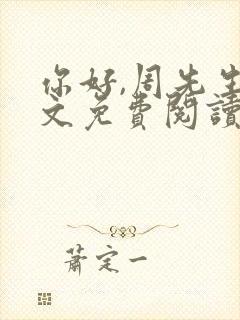 你好,周先生
文免費閱讀
蕭定一